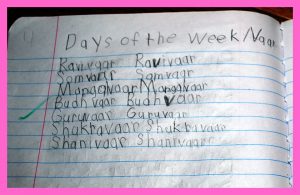 Days of the Week/Vaar
Ravivaar Ravivaar
Somvaar Somvaar
Mangalvaar Mangalvaar
Budhvaar Budhvaar
Guruvaar Guruvaar
Shukravaar Shukravaar
Shanivaar Shanivaar